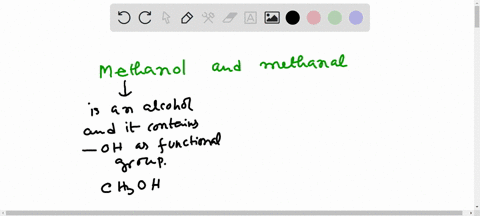 Methanol and methanal
is an alcohol
and it contains
— OH as functional
group.
CH3OH